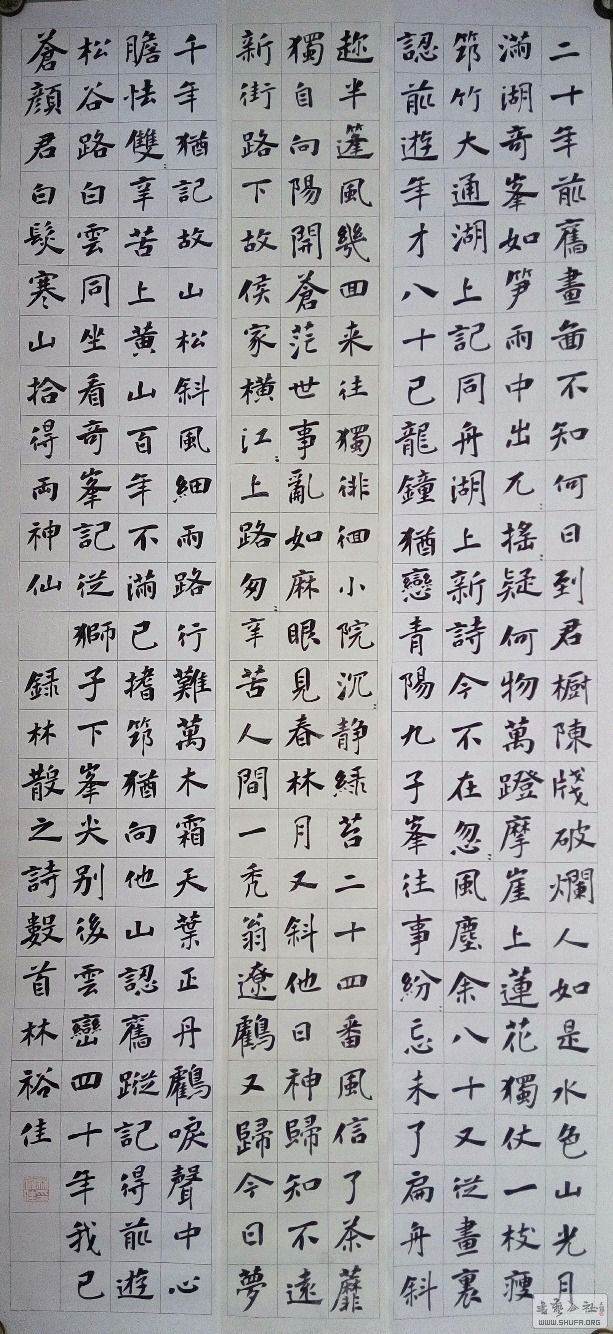 二十年前舊畫面不知何日到君櫥陳牋破爛人如是水色山光月
滿湖奇峯如筍雨中出兀〻搖〻疑何物萬蹬摩崖上蓮花獨仗一枝瘦
筇竹大通湖上記同舟湖上新詩今不在忽〻風塵余八十又從畫裏
認前遊年才八十已龍鐘猶戀青陽九子峯往事紛〻忘未了扁舟斜
趂半篷風幾回来往獨徘徊小院沉〻静綠苔二十四番風信了茶蘼
獨自向陽開蒼茫世事亂如麻眼見春林月又斜他日神歸知不遠
新街路下故侯家橫江〻上路匆〻辛苦人間一禿翁遼鶴又歸今日夢
千年猶記故山松斜風細雨路行難萬木霜天葉正丹鶴唳聲中心
膽怯雙〻辛苦上黃山百年不滿已搘筇猶向他山認舊蹤記得前遊
松谷路白雲同坐看奇峯記從獅子下峯尖別後雲巒四十年我已
蒼顏君白髮寒山拾得兩神仙 錄林散之詩數首林裕佳
書藝公社
WWW.SHUFA.ORG